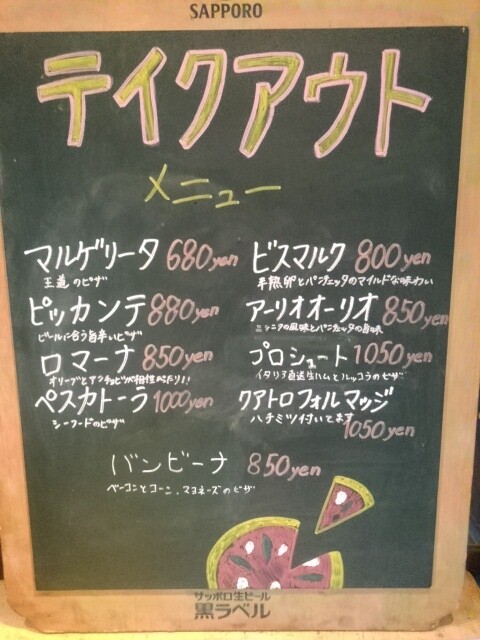 SAPPORO
テイクアウト
メニュー
マルゲリータ 680yen
王道のピザ
ピッカンテ 880yen
ビールに合う旨辛いピザ
ロマーナ 850yen
オリーブとアンチョビが相性ぴったり!
ペスカトーラ 1000yen
シーフードのピザ
ビスマルク 800yen
半熟卵とパンチェッタのマイルドな味わい
アーリオオーリオ 850yen
ニンニクの風味とパンチェッタの旨味
プロシュート 1050yen
イタリア直送生ハムとルッコラのピザ
クアトロフォルマッジ
ハチミツ付いてます
1050yen
バンビーナ 850yen
ベーコンとコーン、マヨネーズのピザ
サッポロ生ビール
黒ラベル